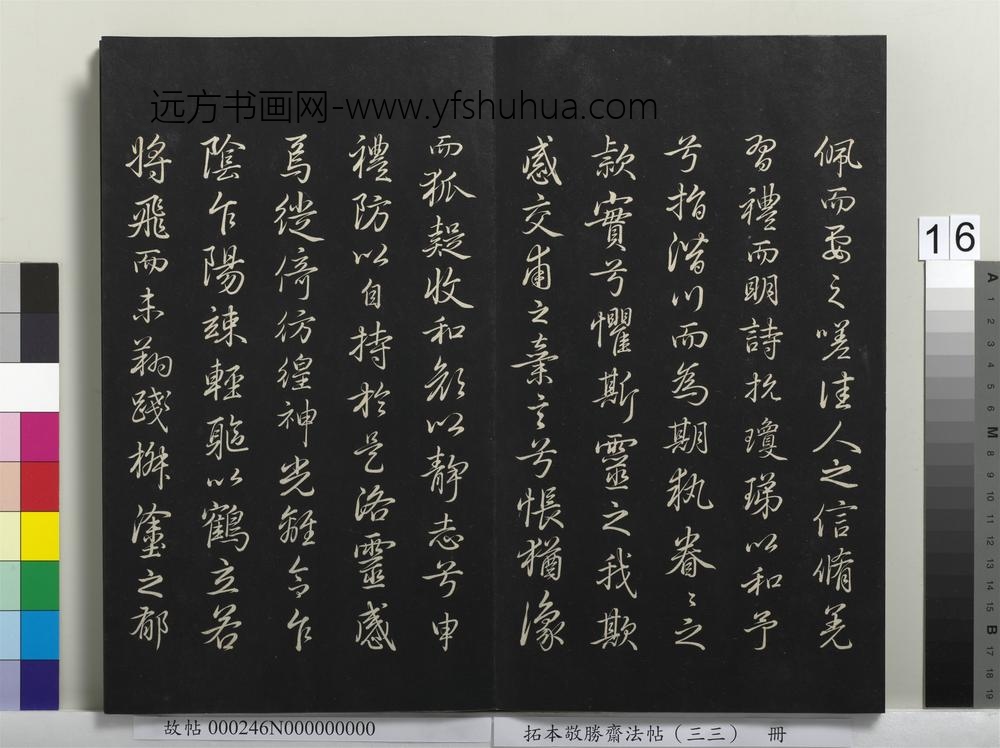 远方书画网-www.yfshuhua.com
佩而要之嗟佳人之信脩羌
習禮而明詩抗瓊珶以和予
兮指潛川而為期執眷々之
款實兮懼斯靈之我欺
感交甫之棄言兮悵猶豫
而狐疑收和顏以靜志兮申
禮防以自持於是洛靈感
焉徙倚彷徨神光離合乍
陰乍陽竦輕軀以鶴立若
將飛而未翔踐椒塗之郁
16
A 1 2 3 4 5 6 M 8 9 10 11 12 13 14 15 B 17 18 19
故帖 000246N000000000
拓本敬勝齋法帖（三三） 冊